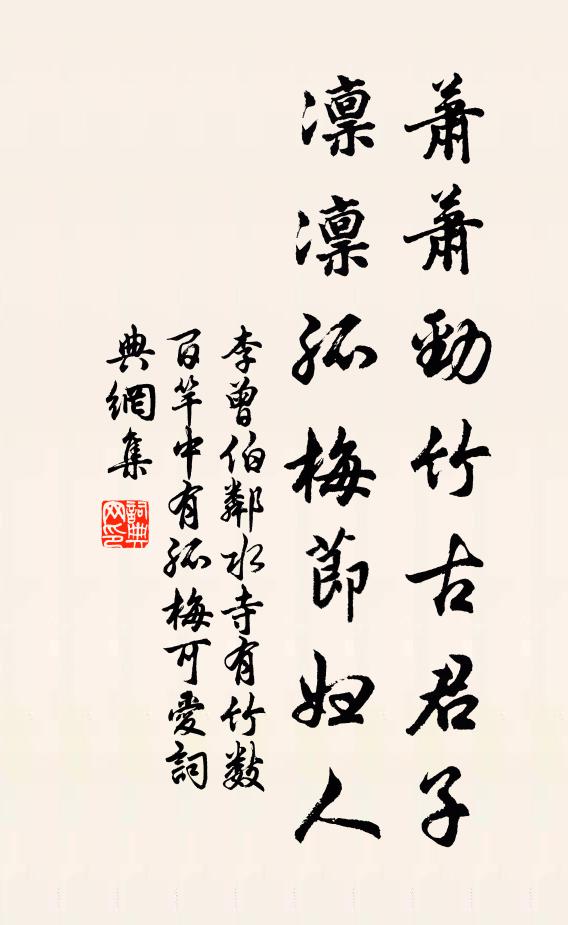 蕭蕭勁竹古君子
凛凛孤梅節婦人
李曾伯鄰水寺有竹数
百竿中有孤梅可愛詞
典網集
詞典网印